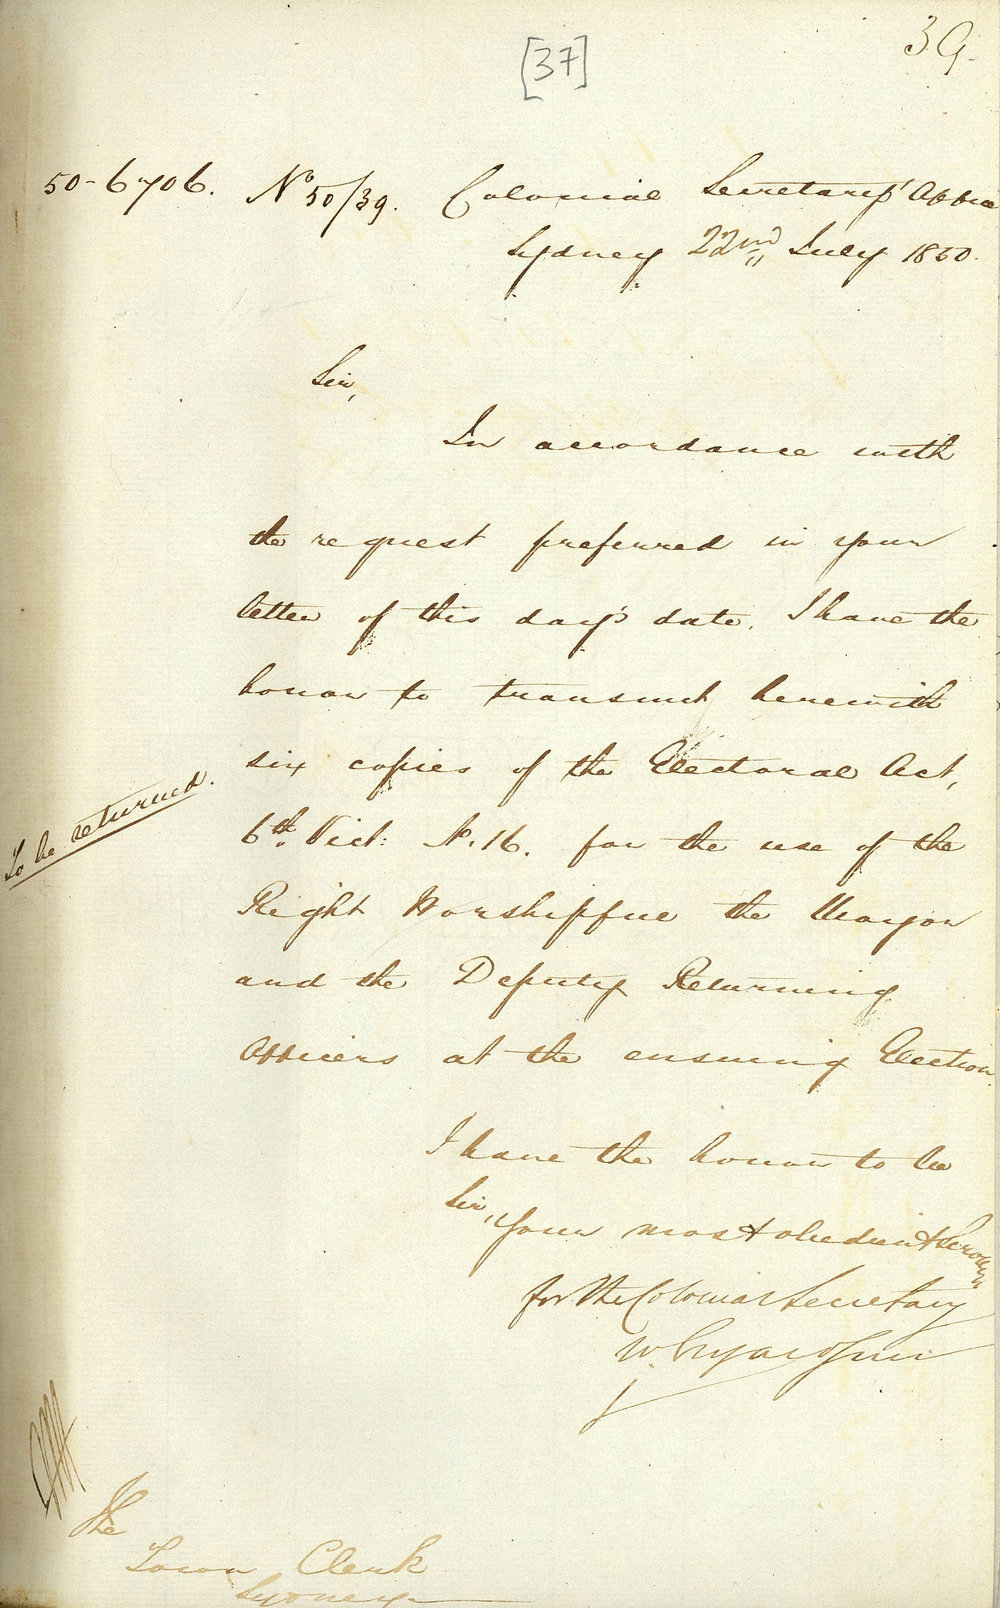 39.
[37]
50-6706. No 50/39. Colonial Secretary's Office
Sydney 22nd July 1850.
Sir,
In accordance with
the request preferred in your
letter of this day's date, I have the
honor to transmit herewith
six copies of the Electoral Act,
To be returned.
6th Vict: No. 16. for the use of the
Right Worshipful the Mayor
and the Deputy Returning
Officers at the ensuing Election.
I have the honor to be
Sir,
Your most obedient Servant
for the Colonial Secretary
W.
The
Town Clerk
Sydney